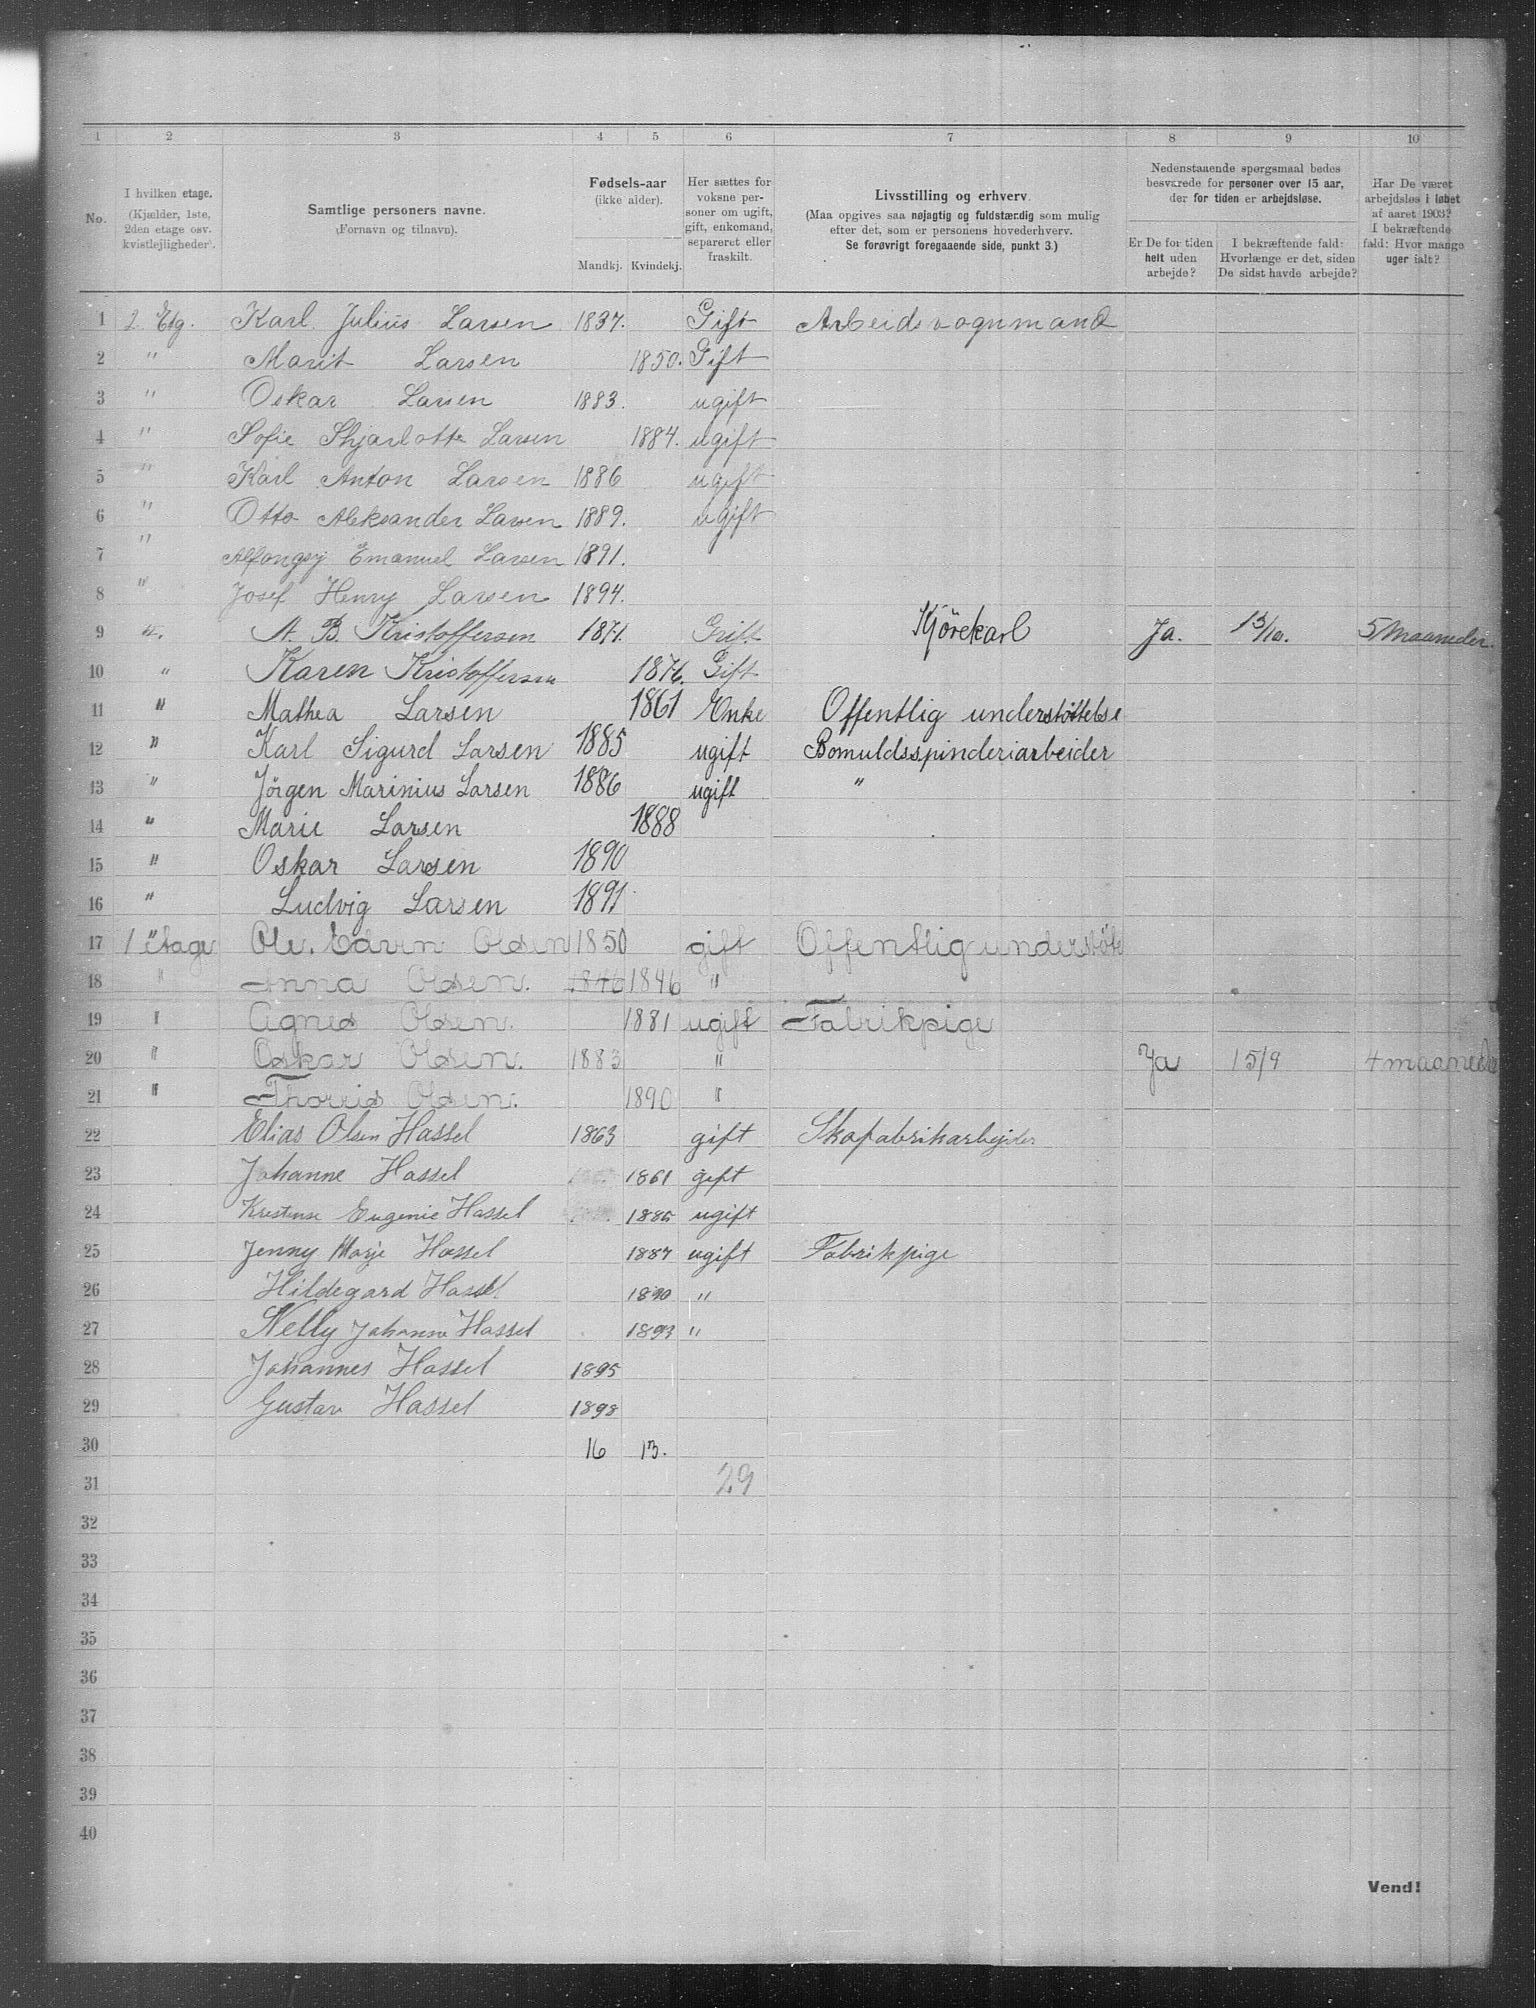 1 2 3 4 5 6 7 8 9 10
No. I hvilken etage. (Kjælder, 1ste, 2den etage osv. kvistlejligheder). Samtlige personers navne. (Fornavn og tilnavn). Fødsels-aar (ikke alder). Mandkj. Kvindekj. Her sættes for voksne personer om ugift, gift, enkemand, separeret eller fraskilt. Livsstilling og erhverv. (Maa opgives saa nøjagtig og fuldstændig som mulig efter det, som er personens hovederhverv. Se forøvrigt foregaaende side, punkt 3.) Nedenstaaende spørgsmaal bedes besvarede for personer over 15 aar, der for tiden er arbejdsløse. Er De for tiden helt uden arbejde? I bekræftende fald: Hvorlænge er det, siden De sidst havde arbejde? Har De været arbejdsløs i løbet af aaret 1903? I bekræftende fald: Hvor mange uger ialt?
1 2 Etg. Karl Julius Larsen 1837. Gift Arbeidsvognmand
2 " Marit Larsen 1850. Gift
3 " Oskar Larsen 1883. ugift
4 " Sofie Shjarlotte Larsen 1884. ugift
5 " Karl Anton Larsen 1886 ugift
6 " Otto Aleksander Larsen 1889. ugift
7 " Emanuel Larsen 1891.
8 " Josef Henry Larsen 1894.
9 A. B. Kristoffersen 1871. Gift Kjörekarl Ja. 13/10. 5 Maaneder.
10 " Karen Kristoffersen 1876. Gift
11 " Mathea Larsen 1861 Enke Offentlig understöttelse
12 " Karl Sigurd Larsen 1885 ugift Bomuldsspinderiarbeider
13 " Jörgen Marinius Larsen 1886 ugift "
14 " Marie Larsen 1888
15 " Oskar Larsen 1890
16 " Ludvig Larsen 1891
17 1 etage Ole. Edvin Olsen 1850 gift Offentlig understöt
18 " Anna Olsen. 1846 1846 "
19 " Agnes Olsen. 1881 ugift Fabrikpige
20 " Oskar Olsen. 1883 " Ja 15/9 4 maaneder
21 " Olsen. 1890 "
22 Elias Olsen Hassel 1863 gift Skofabrikarbejder
23 Johanne Hassel 1861 gift
24 Kristense Eugenie Hassel 1885 ugift
25 Jenny Marje Hassel 1887 ugift Fabrikpige
26 Hildegard Hassel 1890 "
27 Nelly Johanne Hassel 1893 "
28 Johannes Hassel 1895
29 Gustav Hassel 1898
30 16 13.
31 29
32
33
34
35
36
37
38
39
40
Vend!